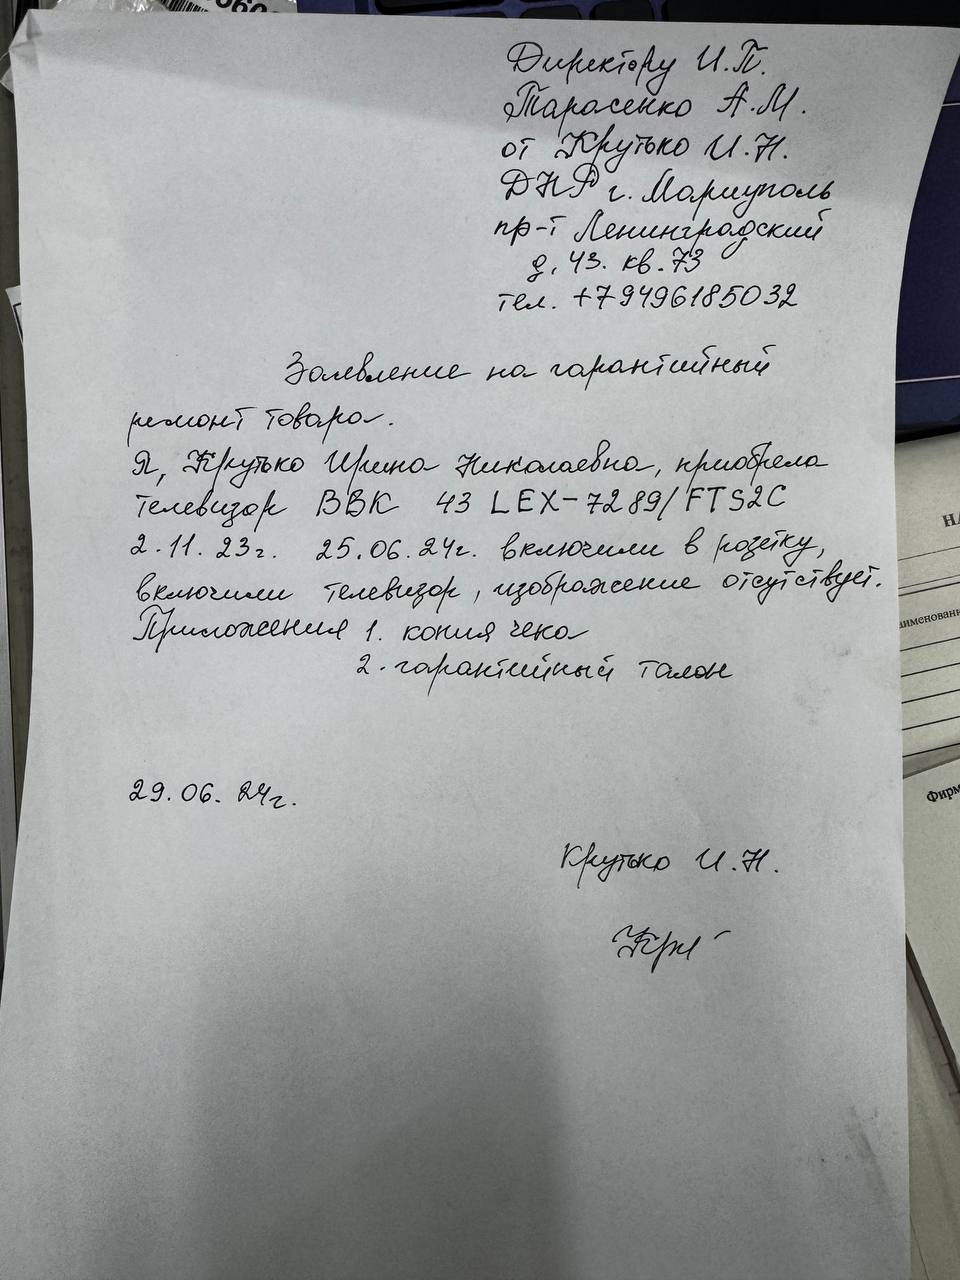 Директору И.П.
Тарасенко А.М.
от Крутько И.Н.
ДНР г. Мариуполь
пр-т Ленинградский
д. 43. кв. 73
тел. +79496185032
Заявление на гарантийный
ремонт товара.
Я, Крутько Ирина Николаевна, приобрела
телевизор BBK 43 LEX-7289/FTS2C
2.11.23г. 25.06.24г. включили в розетку,
включили телевизор, изображение отсутствует.
Приложения 1. копия чека
2. гарантийный талон
29.06.24г.
Крутько И.Н.